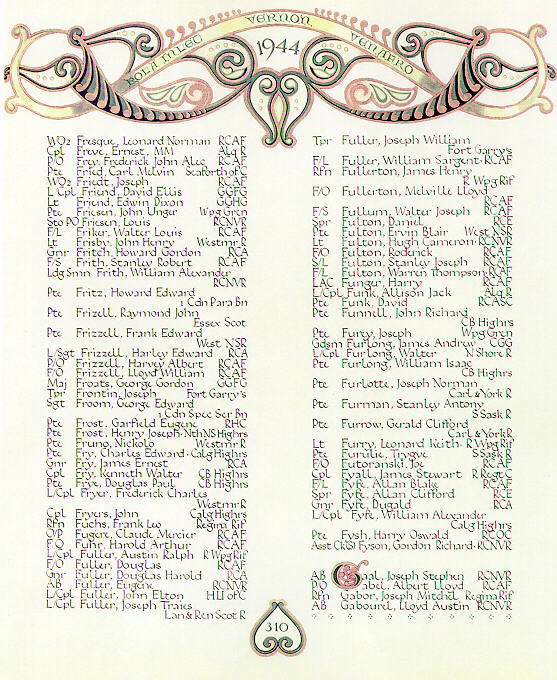 BOLA MLEC VERNON VENAFRO
1944
WO2 Fresque, Leonard Norman RCAF
Cpl Freve, Ernest, MM Alg R
P/O Frey, Frederick John Alec RCAF
Pte Fried, Carl Melvin Seaforth of C
WO2 Friedt, Joseph RCAF
L/Cpl Friend, David Ellis GGFG
Lt Friend, Edwin Dixon GGHG
Pte Friesen, John Unger Wpg Gren
Sto PO Friesen, Louis RCNVR
F/L Friker, Walter Louis RCAF
Lt Frisby, John Henry Westmr R
Gnr Fritch, Howard Gordon RCA
F/S Frith, Stanley Robert RCAF
Ldg Smn Frith, William Alexander
RCNVR
Pte Fritz, Howard Edward
1 Cdn Para Bn
Pte Frizell, Raymond John
Essex Scot
Pte Frizzell, Frank Edward
West NSR
L/Sgt Frizzell, Harley Edward RCA
P/O Frizzell, Harvey Albert RCAF
F/O Frizzell, Lloyd William RCAF
Maj Froats, George Gordon GGFG
Tpr Frontin, Joseph Fort Garry's
Sgt Froom, George Edward
1 Cdn Spec Ser Bn
Pte Frost, Garfield Eugene RHC
Pte Frost, Henry Joseph Nth NS Highrs
Pte Fruno, Nickolo Westmr R
Pte Fry, Charles Edward Calg Highrs
Gnr Fry, James Ernest RCA
Cpl Fry, Kenneth Walter CB Highrs
Pte Frye, Douglas Paul CB Highrs
L/Cpl Fryer, Frederick Charles
Westmr R
Cpl Fryers, John Calg Highrs
Rfn Fuchs, Frank Leo Regina Rif
O/P Fugere, Claude Mercier RCAF
F.O Fuhr, Harold Arthur RCAF
L/Cpl Fuller, Austin Ralph R Wpg Rif
F/O Fuller, Douglas RCAF
Gnr Fuller, Douglas Harold RCA
AB Fuller, Eugene RCNVR
L/Cpl Fuller, John Elton HLI of C
L/Cpl Fuller, Joseph Traies
Lan & Ren Scot R
Tpr Fuller, Joseph William
Fort Garry's
F/L Fuller, William Sargent RCAF
Rfn Fullerton, James Henry
R Wpg Rif
F/O Fullerton, Melville Lloyd
RCAF
F/S Fullum, Walter Joseph RCAF
Spr Fulton, Daniel RCE
Pte Fulton, Ervin Blair West NSR
Lt Fulton, Hugh Cameron RCNVR
F/O Fulton, Roderick RCAF
S/L Fulton, Stanley Joseph RCAF
F/L Fulton, Warren Thompson RCAF
LAC Funger, Harry RCAF
L/Cpl Funk, Allison Jack Alg R
Pte Funk, David RCASC
Pte Funnell, John Richard
CB Highrs
Pte Furey, Joseph Wpg Gren
Gdsm Furlong, James Andrew CGG
L/Cpl Furlong, Walter N Shore R
Pte Furlong, William Isaac
CB Highrs
Pte Furlotte, Joseph Norman
Carl & York R
Pte Furman, Stanley Antony
S Sask R
Pte Furrow, Gerald Clifford
Carl & York R
Lt Furry, Leonard Keith R Wpg Rif
Pte Furulie, Trygve S Sask R
F/O Futoransky, Joe RCAF
Cpl Fyall, James Stewart R Regt C
F/L Fyfe, Allan Blake RCAF
Spr Fyfe, Allan Clifford RCE
Gnr Fyfe, Dugald RCA
L/Cpl Fyfe, William Alexander
Calg Highrs
Pte Fysh, Harry Oswald RCOC
Asst Ck(S) Fyson, Gordon Richard RCNVR
AB Gaal, Joseph Stephen RCNVR
P/O Gabel, Albert Lloyd RCAF
Rfn Gabor, Joseph Mitchel Regina Rif
AB Gabourel, Lloyd Austin RCNVR
310